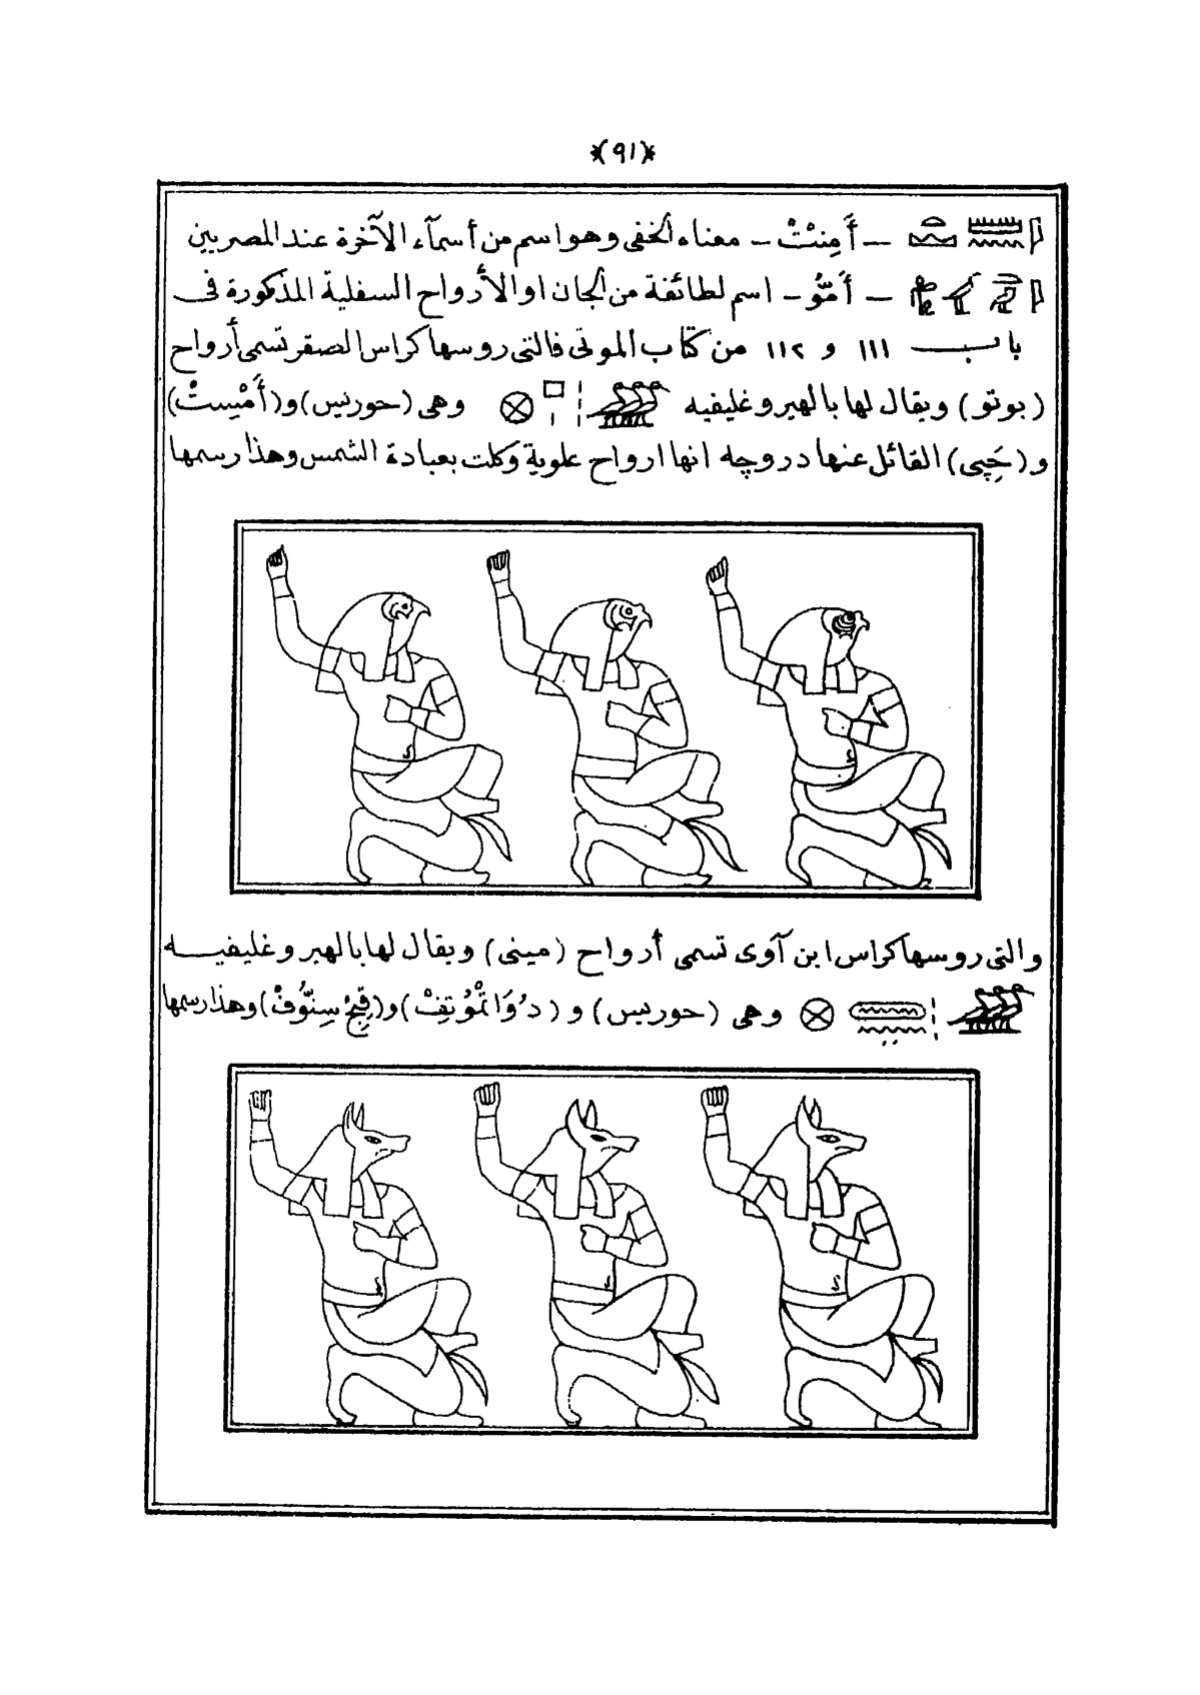 *(٩١)*
— أَمِنتْ — معناه الخفى وهو اسم من أسمآء الآخرة عند المصريين
— أَمّوُ — اسم لطائفة من الجان او الأرواح السفلية المذكورة فى
باب ١١١ و ١١٢ من كتاب الموتى فالتى روسها كراس الصقر تسمى أرواح
(بوتو) ويقال لها بالهيروغليفيه وهى (حوريس) و (أَمْيِستْ)
و (حَپى) القائل عنها دروچه انها ارواح علوية وكلت بعبادة الشمس وهذا رسمها
والتى روسها كراس ابن آوى تسمى أرواح (مينى) ويقال لها بالهيروغليفيه
وهى (حوريس) و (دُوَاتْمُوتِفْ) و (قِبِحْ سِنُّوفْ) وهذا رسمها